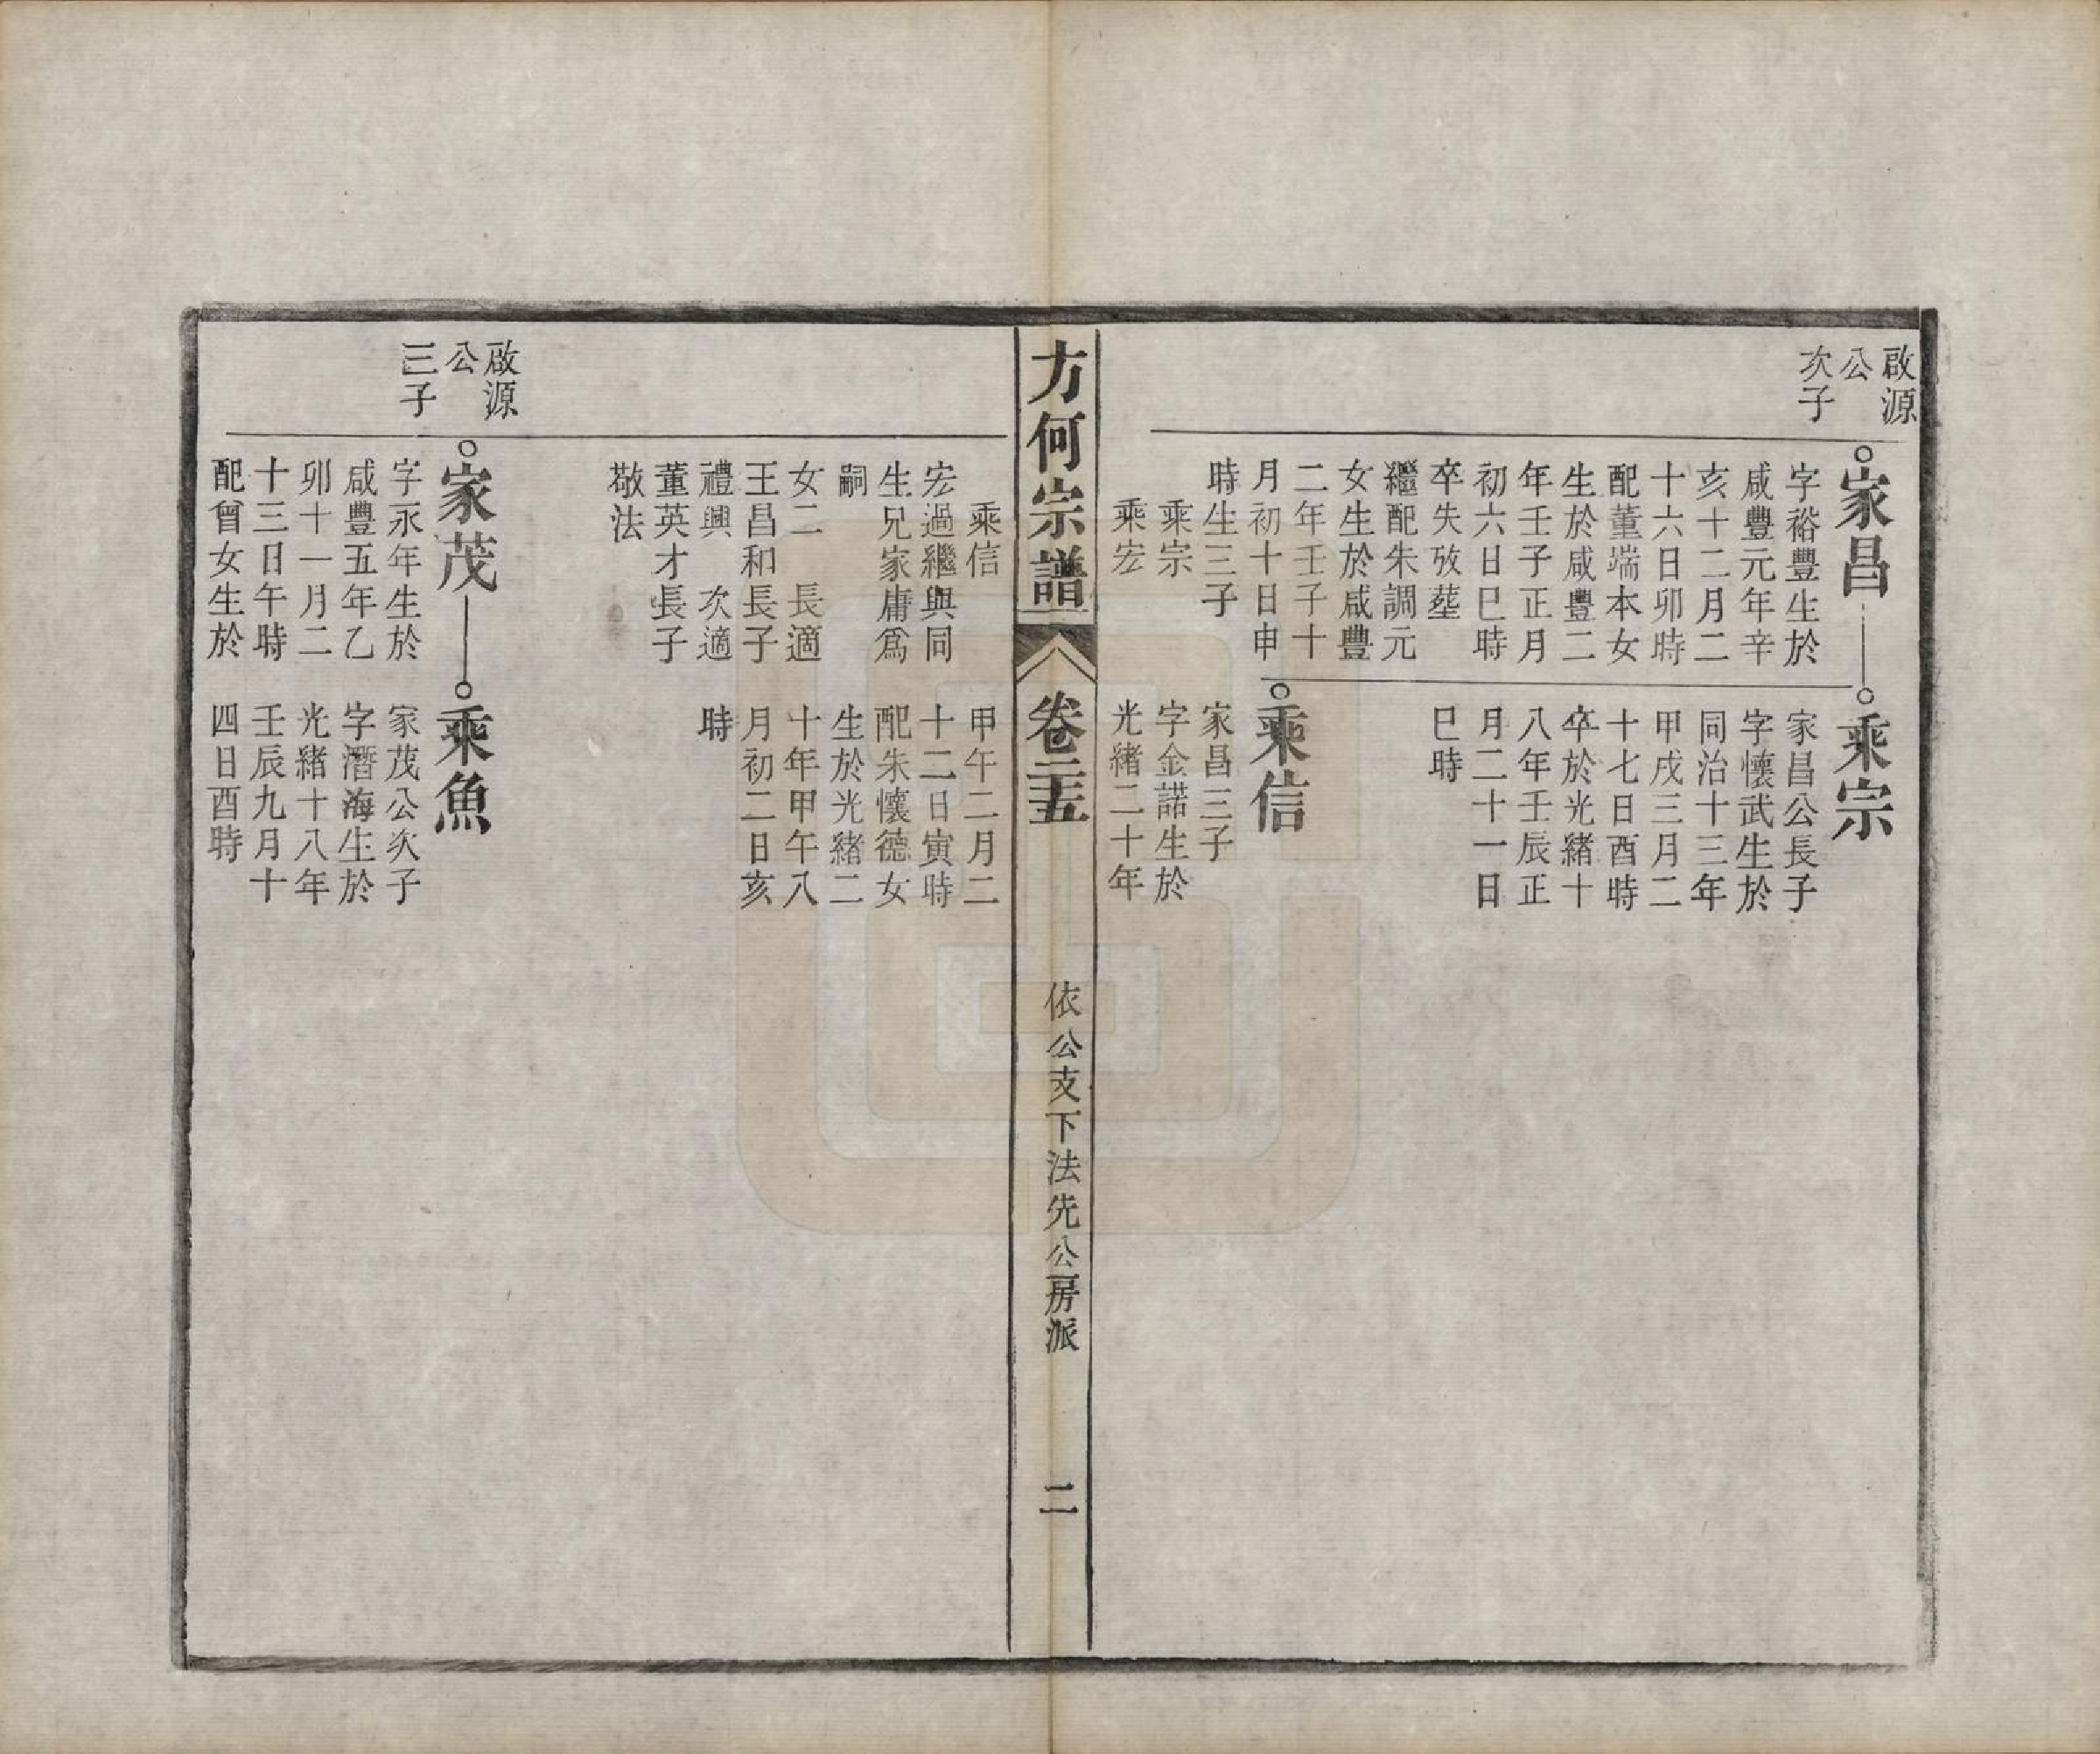 啟源
公
次子
家昌
字裕豐生於
咸豐元年辛
亥十二月二
十六日卯時
配董端本女
生於咸豐二
年壬子正月
初六日巳時
卒失攷塟
繼配朱調元
女生於咸豐
二年壬子十
月初十日申
時生三子
乘宗
乘宏
乘宗
家昌公長子
字懷武生於
同治十三年
甲戌三月二
十七日酉時
卒於光緒十
八年壬辰正
月二十一日
巳時
乘信
家昌三子
字金諾生於
光緒二十年
方何宗譜
卷二十五
依公支下法先公房派
二
乘信
宏過繼與同
生兄家庸爲
嗣
女二 長適
王昌和長子
禮興 次適
董英才長子
敬法
甲午二月二
十二日寅時
配朱懷德女
生於光緒二
十年甲午八
月初二日亥
時
啟源
公
三子
家茂
字永年生於
咸豐五年乙
卯十一月二
十三日午時
配曾女生於
乘魚
家茂公次子
字潛海生於
光緒十八年
壬辰九月十
四日酉時